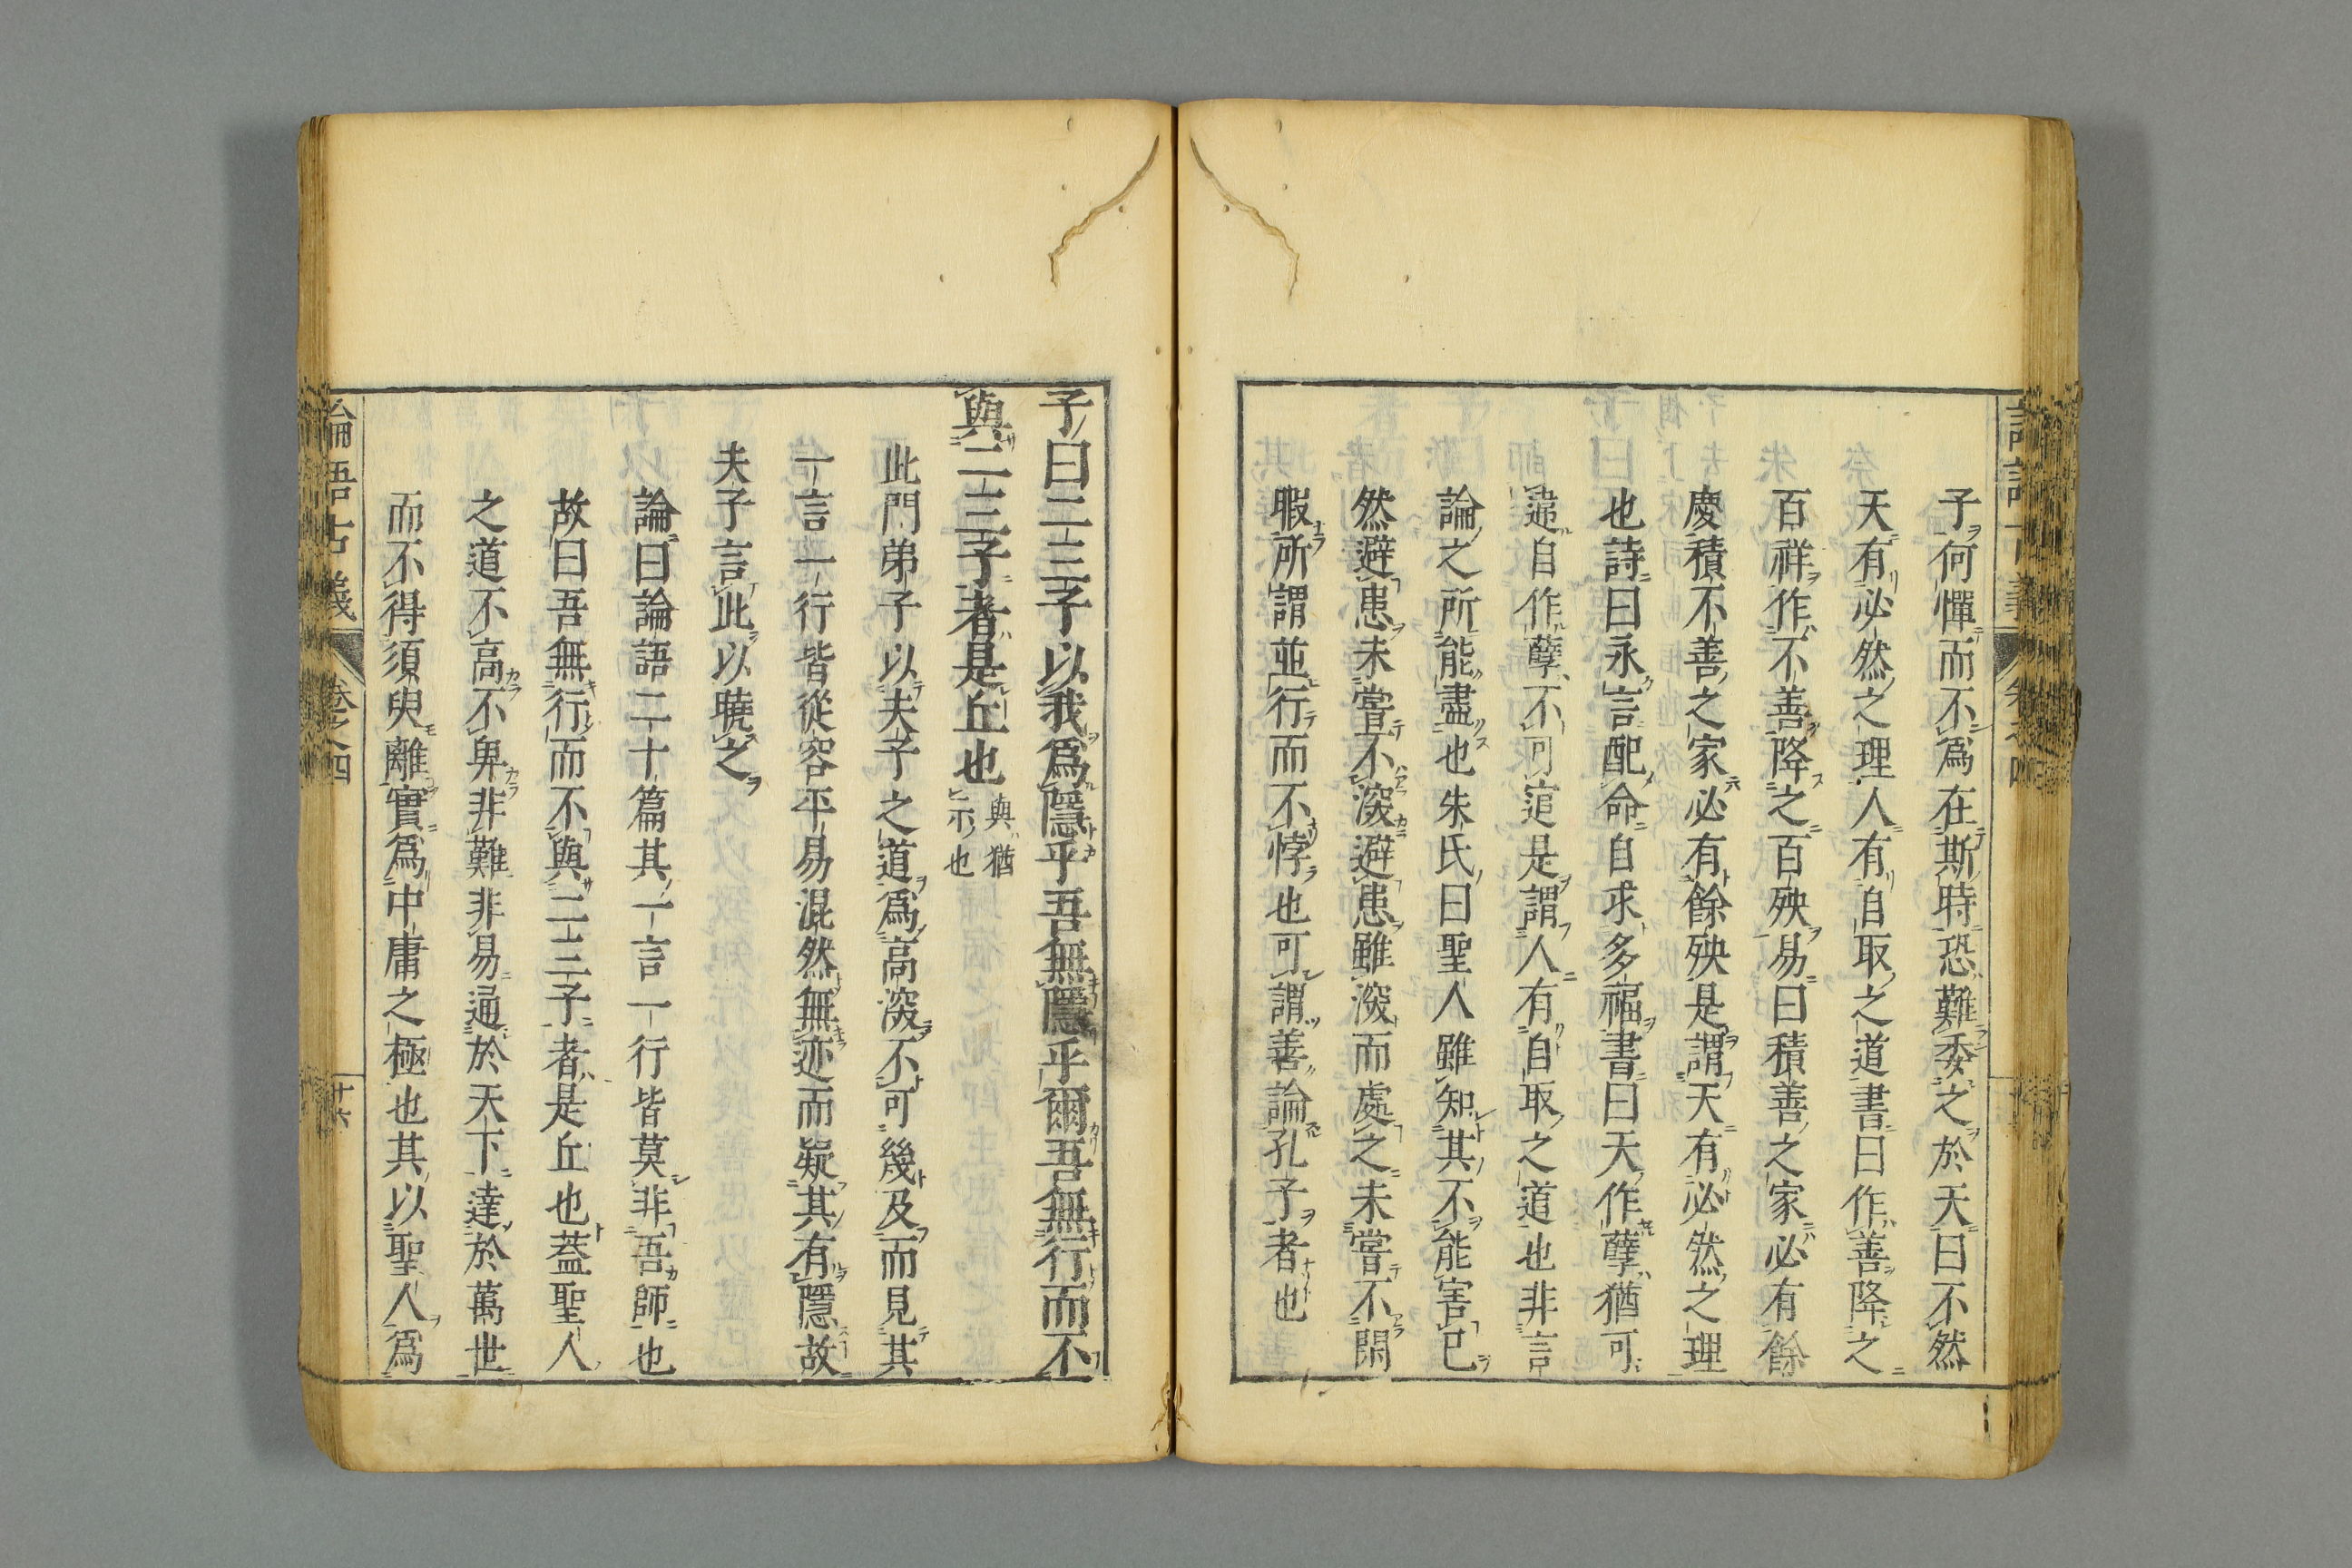 子何憚而不爲在斯時恐難委之於天曰不然
天有必然之理人有自取之道書曰作善降之
百祥作不善降之百殃易曰積善之家必有餘
慶積不善之家必有餘殃是謂天有必然之理
也詩曰永言配命自求多福書曰天作孽猶可
違自作孽不可逭是謂人有自取之道也非言
論之所能盡也朱氏曰聖人雖知其不能害己
然避患未嘗不深避患雖深而處之未嘗不閑
暇所謂並行而不悖也可謂善論孔子者也
子曰二三子以我爲隱乎吾無隱乎爾吾無行而不
與二三子者是丘也 與猶
示也
此門弟子以夫子之道爲高深不可幾及而見其
一言一行皆從容平易混然無迹而疑其有隱故
夫子言此以曉之
論曰論語二十篇其一言一行皆莫非吾師也
故曰吾無行而不與二三子者是丘也蓋聖人
之道不高不卑非難非易通於天下達於萬世
而不得須臾離實爲中庸之極也其以聖人爲
論語古義 卷之四 十六